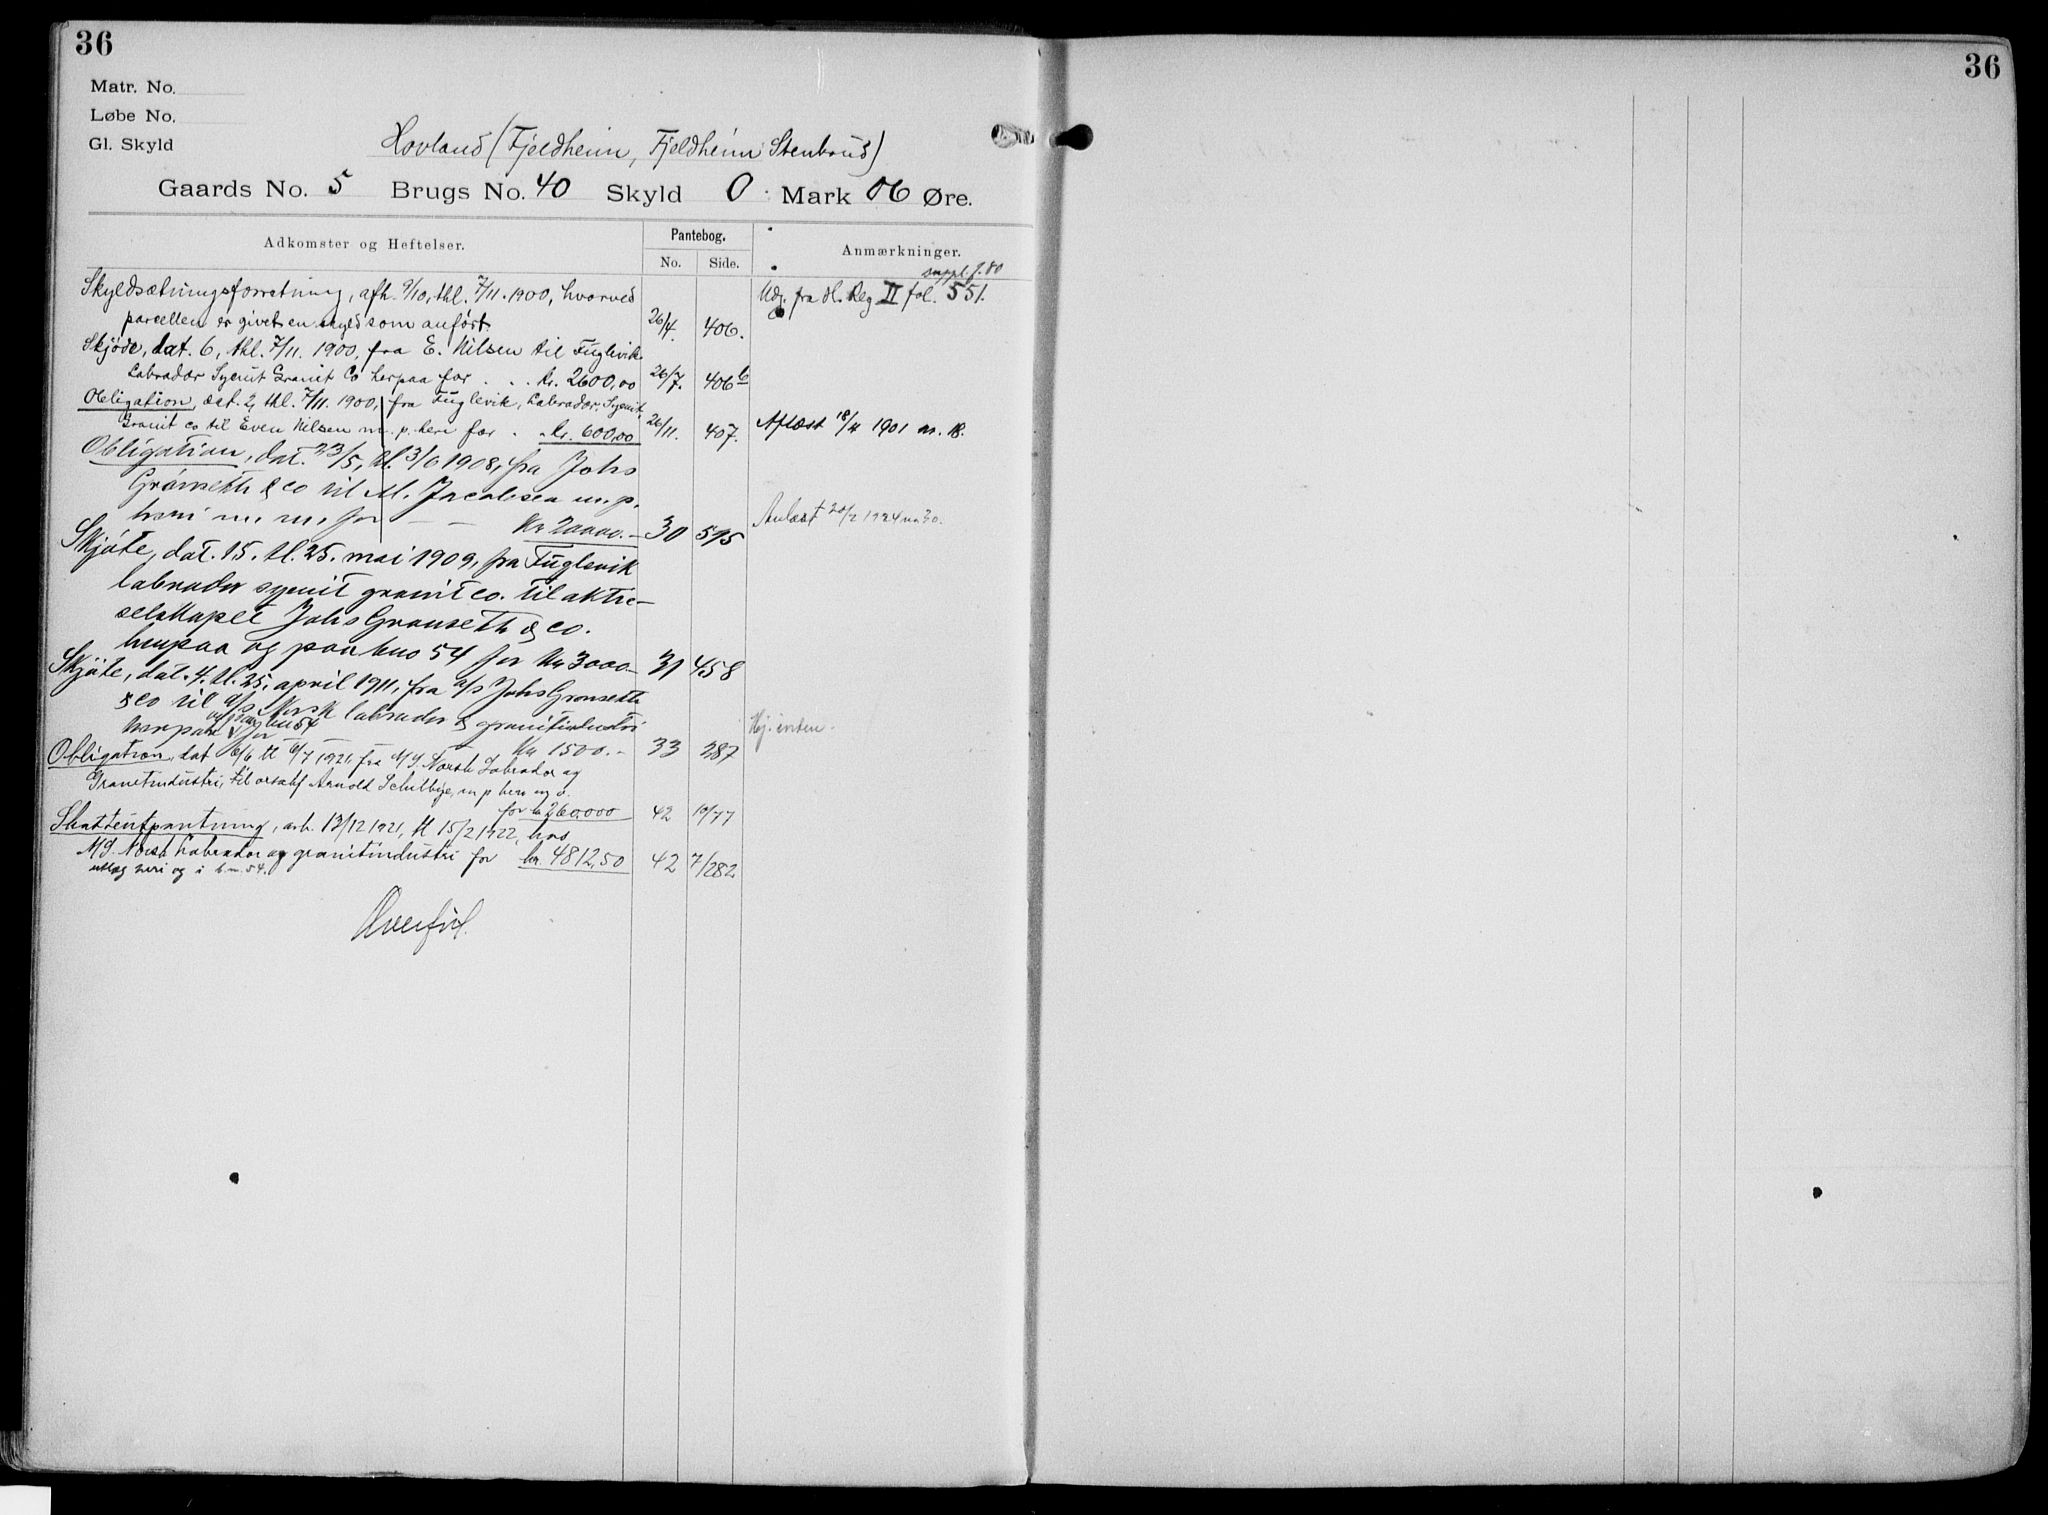 36
36
Matr. No.
Løbe No.
Gl. Skyld
Hovland (Fjeldheim, Fjeldheim Stenbrud)
Gaards No. 5 Brugs No. 40 Skyld 0 Mark 06 Øre.
Adkomster og Heftelser. Pantebog. Anmærkninger.
No. Side.
suppl. f. 80
Skyldsætningsforretning, afh. 9/10, thl. 7/11. 1900, hvorved Udg. fra dl. Reg II fol. 551.
parcellen er givet en skyld som anført. 26/4. 406.
Skjøde, dat. 6, thl. 7/11. 1900, fra E. Nilsen til Fuglevik
Labrador Syenit Granit Co herpaa for . . . kr. 2600,00 26/7. 406 b
Obligation, dat. 2, thl. 7/11. 1900, fra Fuglevik, Labrador, Syenit,
Granit co til Even Nilsen m. p. heri for . kr. 600,00 26/11. 407. Aflæst 18/4 1901 nr. 18.
Obligation, dat. 23/5, tl. 3/6 1908, fra Johs
Grønseth & co til M. Jacobsen m. p.
heri m. m. for — — Kr 20000.— 30 595 Avlæst 20/2 1924 nr 30.
Skjøte, dat. 15. tl. 25. mai 1909, fra Fuglevik
labrador syenit granit co. til aktie-
selskapet Johs Grønseth & co.
herpaa og paa bno 54 for Kr 3000.— 31 458
Skjøte, dat. 4. tl. 25. april 1911, fra a/s Johs Grønseth
& co til a/s Norsk labrador & granitindustri
herpaa og paa bno 54 for Kr 1500.— 33 287 Hj. inden
Obligation, dat 6/6 tl 6/7 1921 fra A/S. Norsk Labrador og
Granitindustri, til orsakf Arnold Schibbye, m p heri og o.
for kr 260,000 42 10/77
Skatteutpantning, avh. 13/12 1921, tl 15/2 1922, hos
A/S. Norsk Labrador og granitindustri for kr. 4812,50 42 7/282
utlæg heri og i b. n. 54.
Overført.